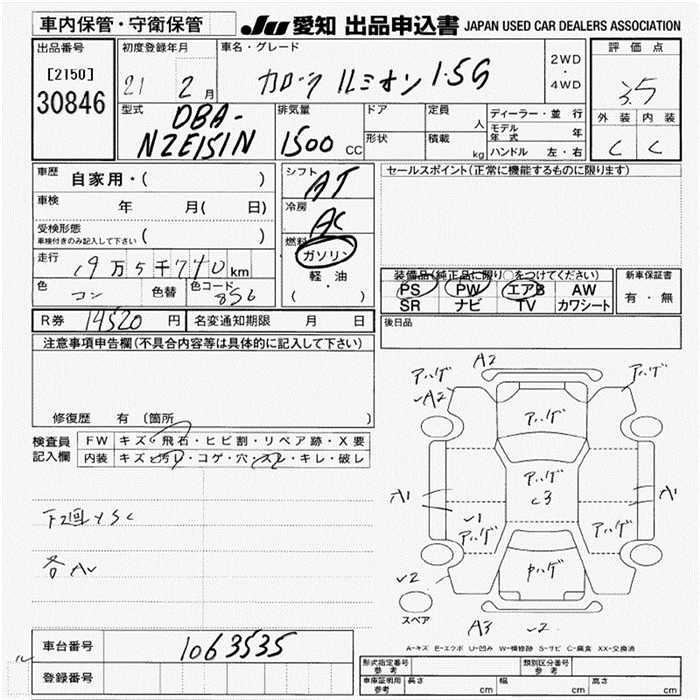 車内保管・守衛保管 JU 愛知 出品申込書 JAPAN USED CAR DEALERS ASSOCIATION
出品番号 初度登録年月 車名・グレード 評価点
[2150] 21 年 2 月 カローラ ルミオン 1.5G 2WD・4WD 3.5
30846 型式 排気量 ドア 定員 人 ディーラー・並行 外装 内装
DBA- 1500 CC 形状 積載 kg モデル年式 年 C C
NZE151N ハンドル 左・右
車歴 自家用・( ) シフト AT セールスポイント(正常に機能するものに限ります)
車検 年 月( 日) 冷房 AC
受検形態 ( )
車検付きのみ記入して下さい
燃料 ガソリン
軽・油
( )
走行 19万5千740km 装備品(純正品に限り○をつけてください) 新車保証書
色 コン 色替 色コード 8S6 PS PW エアB AW 有・無
SR ナビ TV カワシート
R券 14520 円 名変通知期限 月 日 後日品
注意事項申告欄(不具合内容等は具体的に記入して下さい)
修復歴 有 (箇所 )
検査員記入欄 FW キズ・飛石・ヒビ割・リペア跡・X要
内装 キズ・汚レ・コゲ・穴・スレ・キレ・破レ
アハゲ A2 アハゲ
A2 アハゲ
アハゲ
A1 A1
アハゲ アハゲ
アハゲ
スペア
A3
A-キズ E-エクボ U-凹み W-補修跡 S-サビ C-腐食 XX-交換済
車台番号 1063535
登録番号
形式指定番号 参考 類別区分番号 参考
車庫証明用 参考 長さ cm 幅 cm 高さ cm